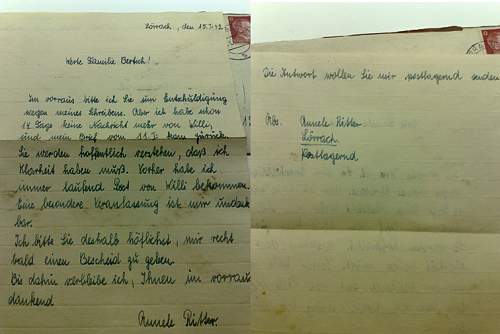 Lörrach, den 15.7.42
Werte Familie Bertsch!
Im vorraus bitte ich Sie um Entschuldigung
wegen meines Schreibens. Aber ich habe schon
14 Tage keine Nachricht mehr von Willi,
und mein Brief vom 11.7. kam zurück.
Sie werden hoffentlich verstehen, daß ich
Klarheit haben muß. Vorher habe ich
immer laufend Post von Willi bekommen.
Eine besondere Veranlassung ist mir undenk
bar.
Ich bitte Sie deshalb höflichst, mir recht
bald einen Bescheid zu geben.
Bis dahin verbleibe ich, Ihnen im vorraus
dankend
Annele Ritter.
Die Antwort wollen Sie mir postlagernd senden
Abs. Annele Ritter
Lörrach
Postlagernd